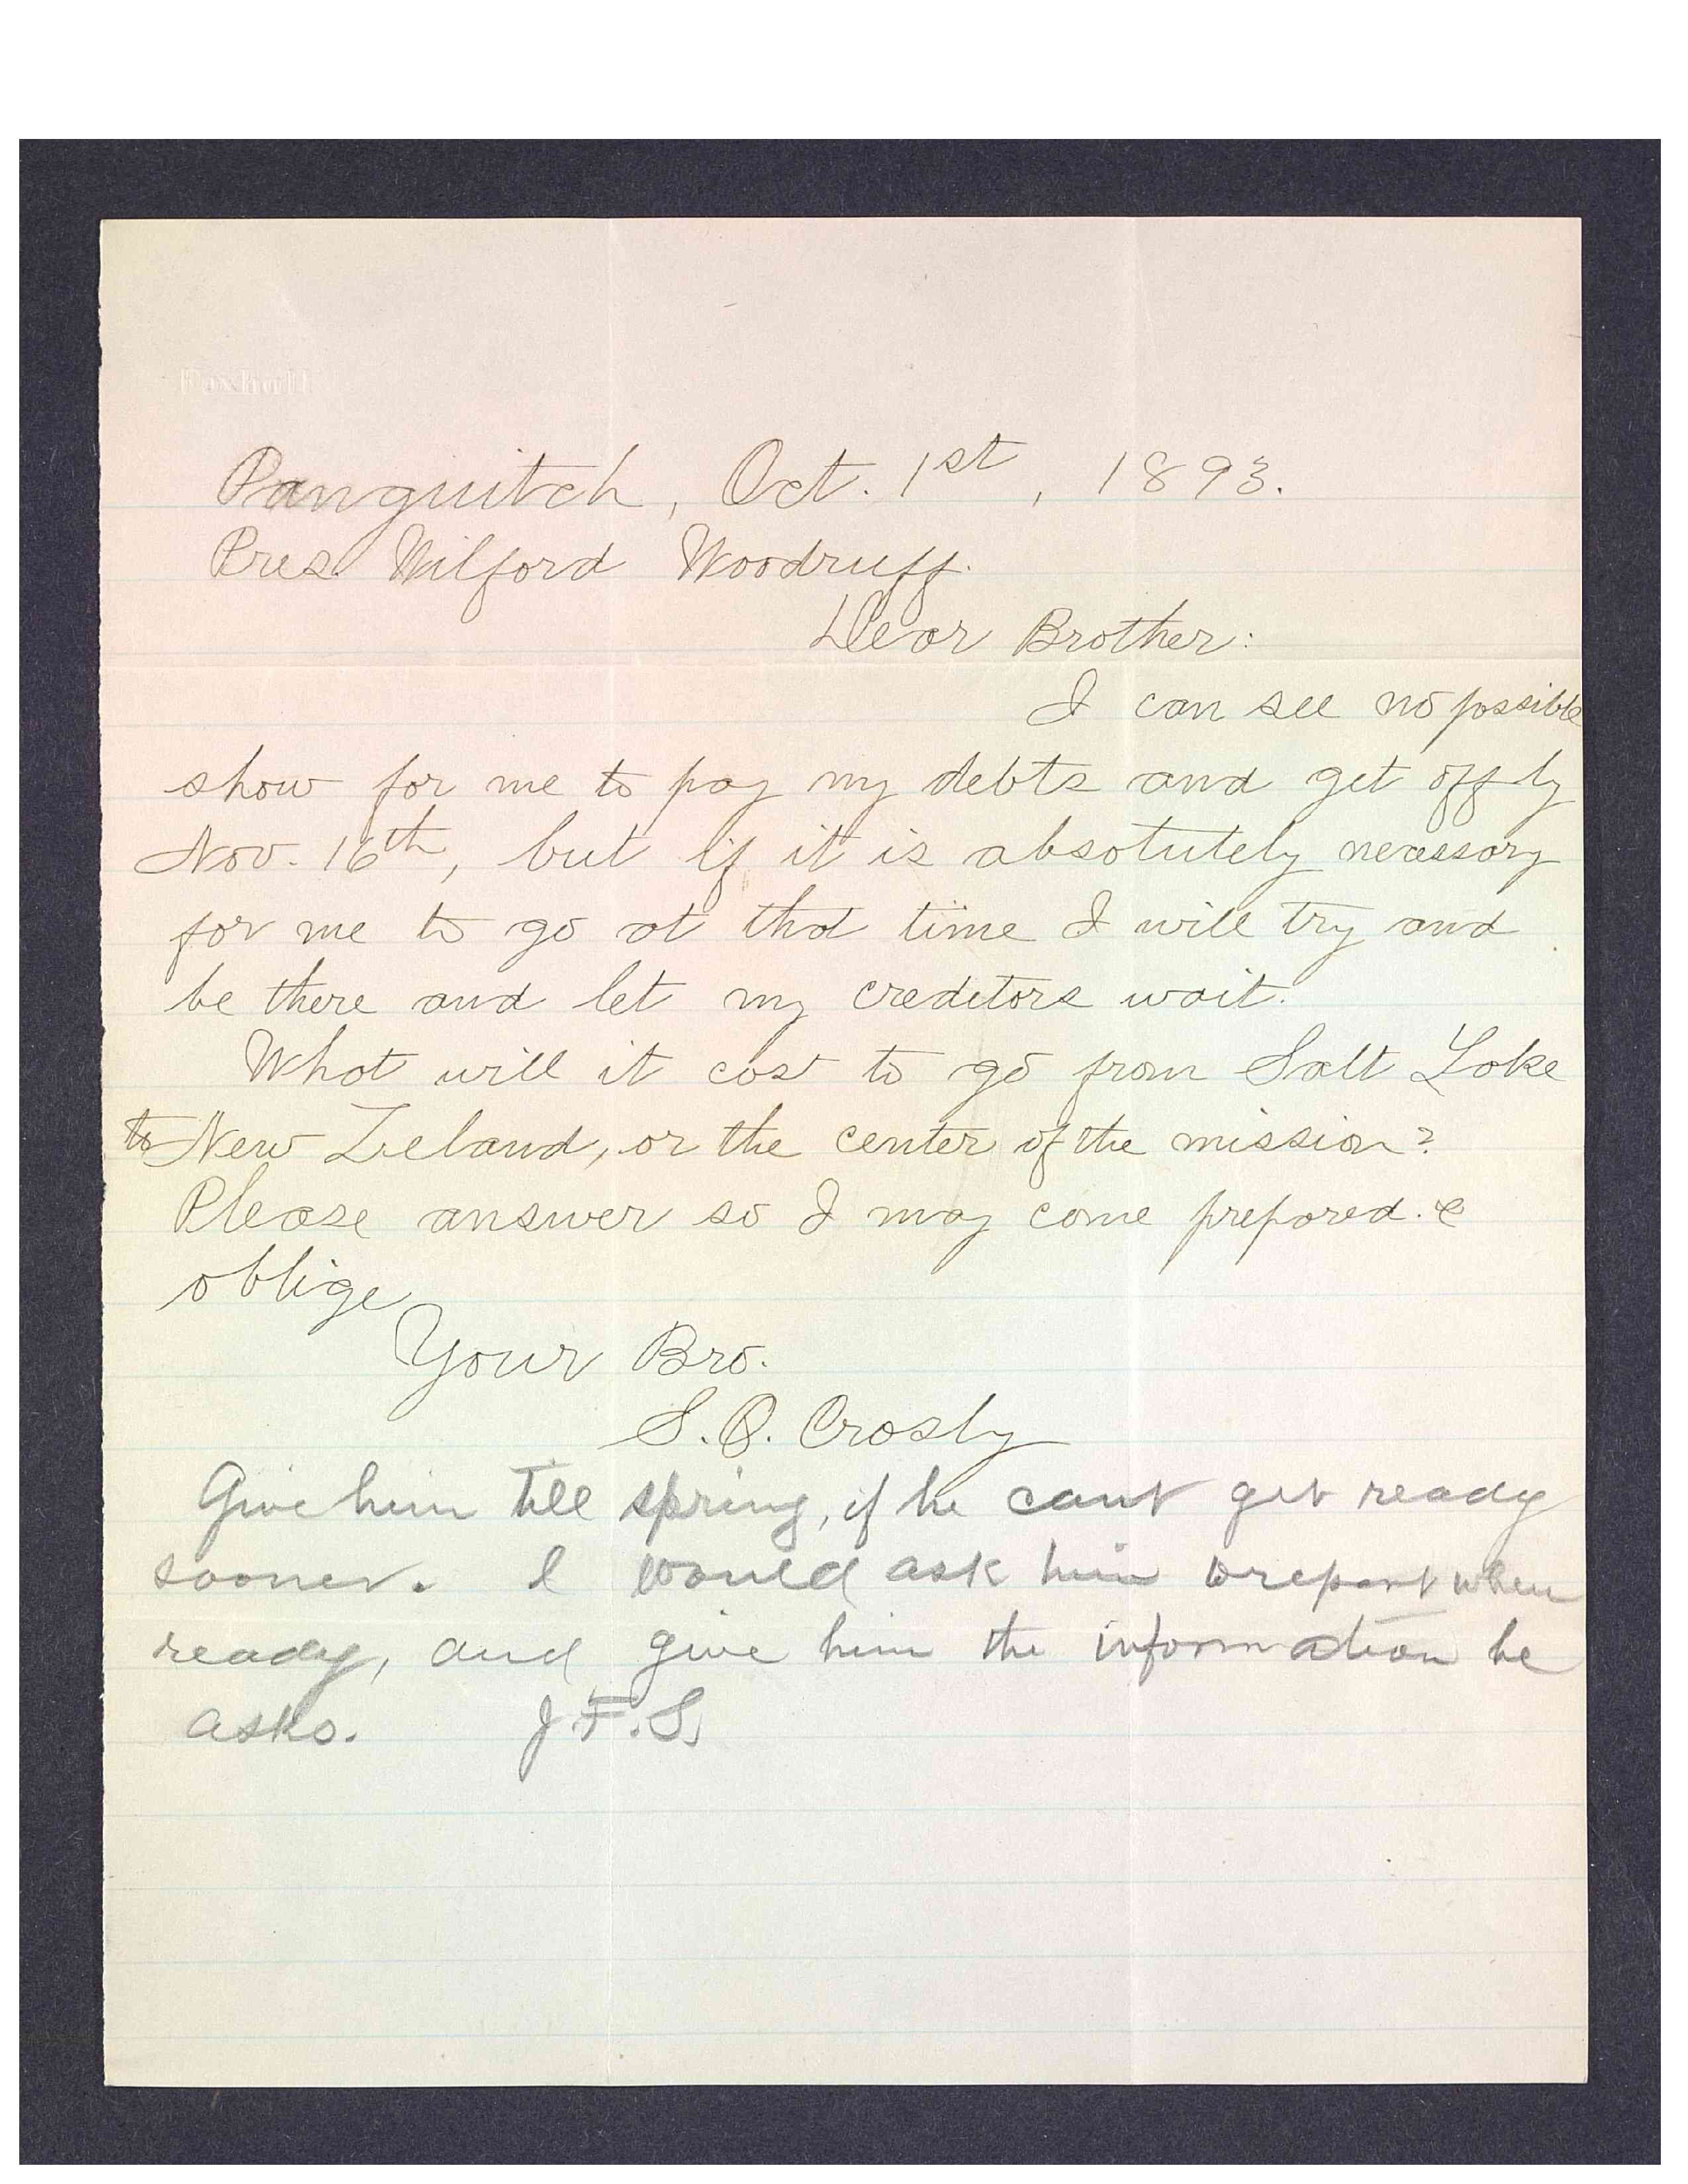 Foxhall
Panguitch, Oct. 1st, 1893.
Pres. Wilford Woodruff.
Dear Brother:
I can see no possible
show for me to pay my debts and get off by
Nov. 16th, but if it is absotutely necessary
for me to go at that time I will try and
be there and let my creditors wait.
What will it cost to go from Salt Lake
to New Zeland, or the center of the mission?
Please answer so I may come prepared. &
oblige
Your Bro.
S. O. Crosby
Give him till spring, if he cant get ready
sooner. I would ask him to report when
ready, and give him the information he
asks. J. F. S.